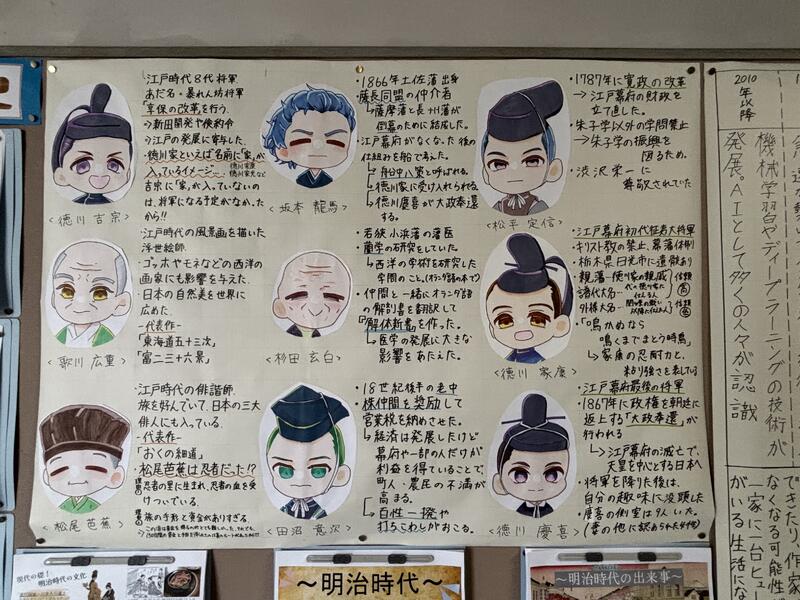 ・江戸時代8代将軍
あだ名・暴れん坊将軍
「享保の改革を行う。
→新田開発や倹約令
→江戸の発展に寄与した.
・徳川家といえば名前に「家」が
入っているイメージ…
吉宗に「家」が入っていないの
は、将軍になる予定がなかった
から!!
<徳川 吉宗>
・江戸時代の風景画を描いた
浮世絵師.
・ゴッホやモネなどの西洋の
画家にも影響を与えた.
・日本の自然美を世界に
広めた.
-代表作-
「東海道五十三次」
「富二三十六景」
<歌川 広重>
・江戸時代の俳諧師.
旅を好んでいて、日本の三大
俳人にも入っている.
-代表作-
「おくの細道」
・松尾芭蕉は忍者だった!?
忍者の里に生まれ、忍者の血を
けついている.
旅の手形と資金がありすぎる.
<松尾 芭蕉>
・1866年土佐藩出身
薩長同盟の仲介者
↳薩摩藩と長州藩が
倒幕のために結成した。
・江戸幕府がなくなった後の
仕組みを船で考えた。
↳船中八策と呼ばれる。
↳徳川家に受け入れられる
↳徳川慶喜が大政奉還
する。
<坂本 龍馬>
・若狭小浜藩の藩医
・蘭学の研究をしていた。
↳西洋の学術を研究した
学問のこと。(オランダ語の本で)
・仲間と一緒にオランダ語
の解剖書を翻訳して
『解体新書』を作った。
↳医学の発展に大きな
影響をあたえた。
<杉田 玄白>
・18世紀後半の老中
・株仲間を奨励して
営業税を納めさせた。
↳経済は発展したけど
幕府や一部の人だけが
利益を得ていることで、
町人・農民の不満が
高まる。
↳百姓一揆や
打ちこわしがおこる。
<田沼 意次>
・1787年に寛政の改革
→江戸幕府の財政を
立て直した。
・朱子学以外の学問禁止
→朱子学の振興を
図るため。
・渋沢栄一に
尊敬されていた
<松平 定信>
・江戸幕府初代征夷大将軍
・キリスト教の禁止、幕藩体制
・栃木県日光市に遺骸あり
・親藩-徳川家の親戚
譜代大名-
外様大名-
・「鳴かぬなら
鳴くまでまとう時鳥」
↳家康の忍耐力と、
粘り強さを表している
<徳川 家康>
・江戸幕府最後の将軍
・1867年に政権を朝廷に
返上する「大政奉還」が
行われる
↳江戸幕府の滅亡で、
天皇を中心とする日本へ
・将軍を降りた後は、
自分の趣味に没頭した
・慶喜の側室は9人いた。
<徳川 慶喜>
2010年以降
機械学習やディープラーニングの技術が
発展。AIとして多くの人々が認識
できたり、作家
なくなる可能性が
一家に一台ヒュー
がいる生活にな
現代の礎!
明治時代の文化
～明治時代～
～明治時代の出来事～